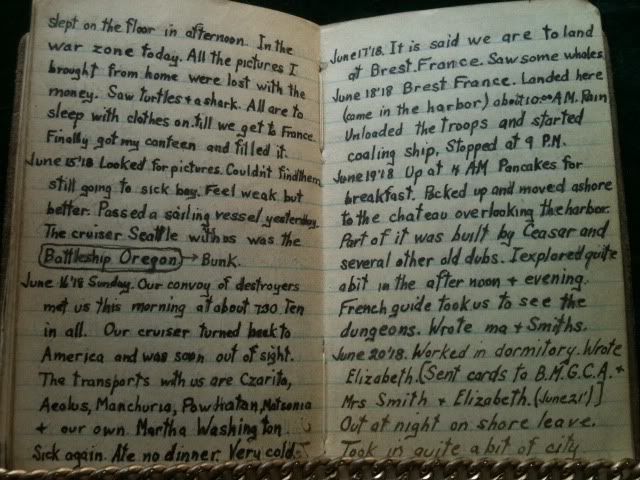 slept on the floor in afternoon. In the
war zone today. All the pictures I
brought from home were lost with the
money. Saw turtles & a shark. All are to
sleep with clothes on till we get to France.
Finally got my canteen and filled it.
June 15'18 Looked for pictures. Couldn't find them
still going to sick bay. Feel weak but
better. Passed a sailing vessel yesterday.
The cruiser Seattle with us was the
Battleship Oregon → Bunk.
June 16'18 Sunday. Our convoy of destroyers
met us this morning at about 7:30 Ten
in all. Our cruiser turned back to
America and was soon out of sight.
The transports with us are Czarita,
Aeolus, Manchuria, Powhatan, Matsonia
& our own Martha Washington.
Sick again. Ate no dinner. Very cold.
June 17'18. It is said we are to land
at Brest. France. Saw some whales
June 18'18 Brest France. Landed here
(came in the harbor) about 10:00 A.M. Rain
Unloaded the troops and started
coaling ship. Stopped at 9 P.M.
June 19'18 Up at 4 AM Pancakes for
breakfast. Packed up and moved ashore
to the chateau overlooking the harbor.
Part of it was built by Ceasar and
several other old dubs. I explored quite
a bit in the after noon & evening.
French guide took us to see the
dungeons. Wrote ma & Smiths.
June 20'18. Worked in dormitory. Wrote
Elizabeth. [Sent cards to B.M.G.C.A. &
Mrs Smith & Elizabeth. (June 21')]
Out at night on shore leave.
Took in quite a bit of city